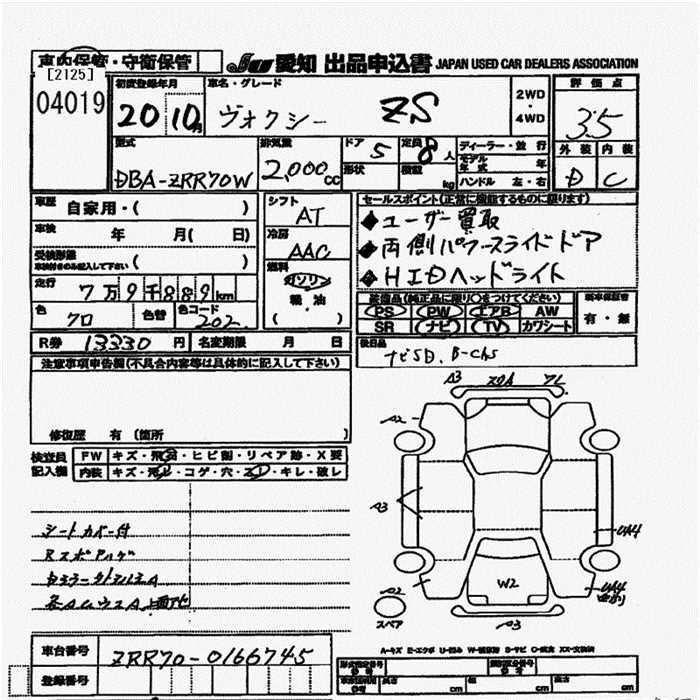 車内保管・守衛保管
JU 愛知 出品申込書 JAPAN USED CAR DEALERS ASSOCIATION
[2125]
04019
初度登録年月 20 10月
車名・グレード ヴォクシー ZS
2WD・4WD
評価点 3.5
外装 内装
D C
型式 DBA-ZRR70W
排気量 2,000cc
ドア 5
形状
定員 8人
積載 kg
ディーラー・並行
モデル年式 年
ハンドル 左・右
車歴 自家用・( )
車検 年 月( 日)
受検形態 ( )
車検付きのみ記入して下さい
走行 7万9千889km
色 クロ 色替 色コード 202
シフト AT
冷房 AAC
燃料 ガソリン
軽・油
( )
セールスポイント(正常に機能するものに限ります)
ユーザー買取
両側パワースライドドア
HIDヘッドライト
装備品(純正品に限り○をつけてください)
PS PW エアB AW
SR ナビ TV カワシート
新車保証書
有・無
R券 13330円 名変期限 月 日
後日品
ナビSD、B-Chs
注意事項申告欄(不具合内容等は具体的に記入して下さい)
修復歴 有(箇所 )
検査員記入欄
FW キズ・飛石・ヒビ割・リペア跡・X要
内装 キズ・汚レ・コゲ・穴・スレ・キレ・破レ
シートカバー付
A3
A2
A3
A2
W2
UA4
UA4
A3
スペア
A-キズ E-エクボ U-凹み
車台番号 ZRR70-0166745
登録番号
長さ cm
幅 cm
高さ cm